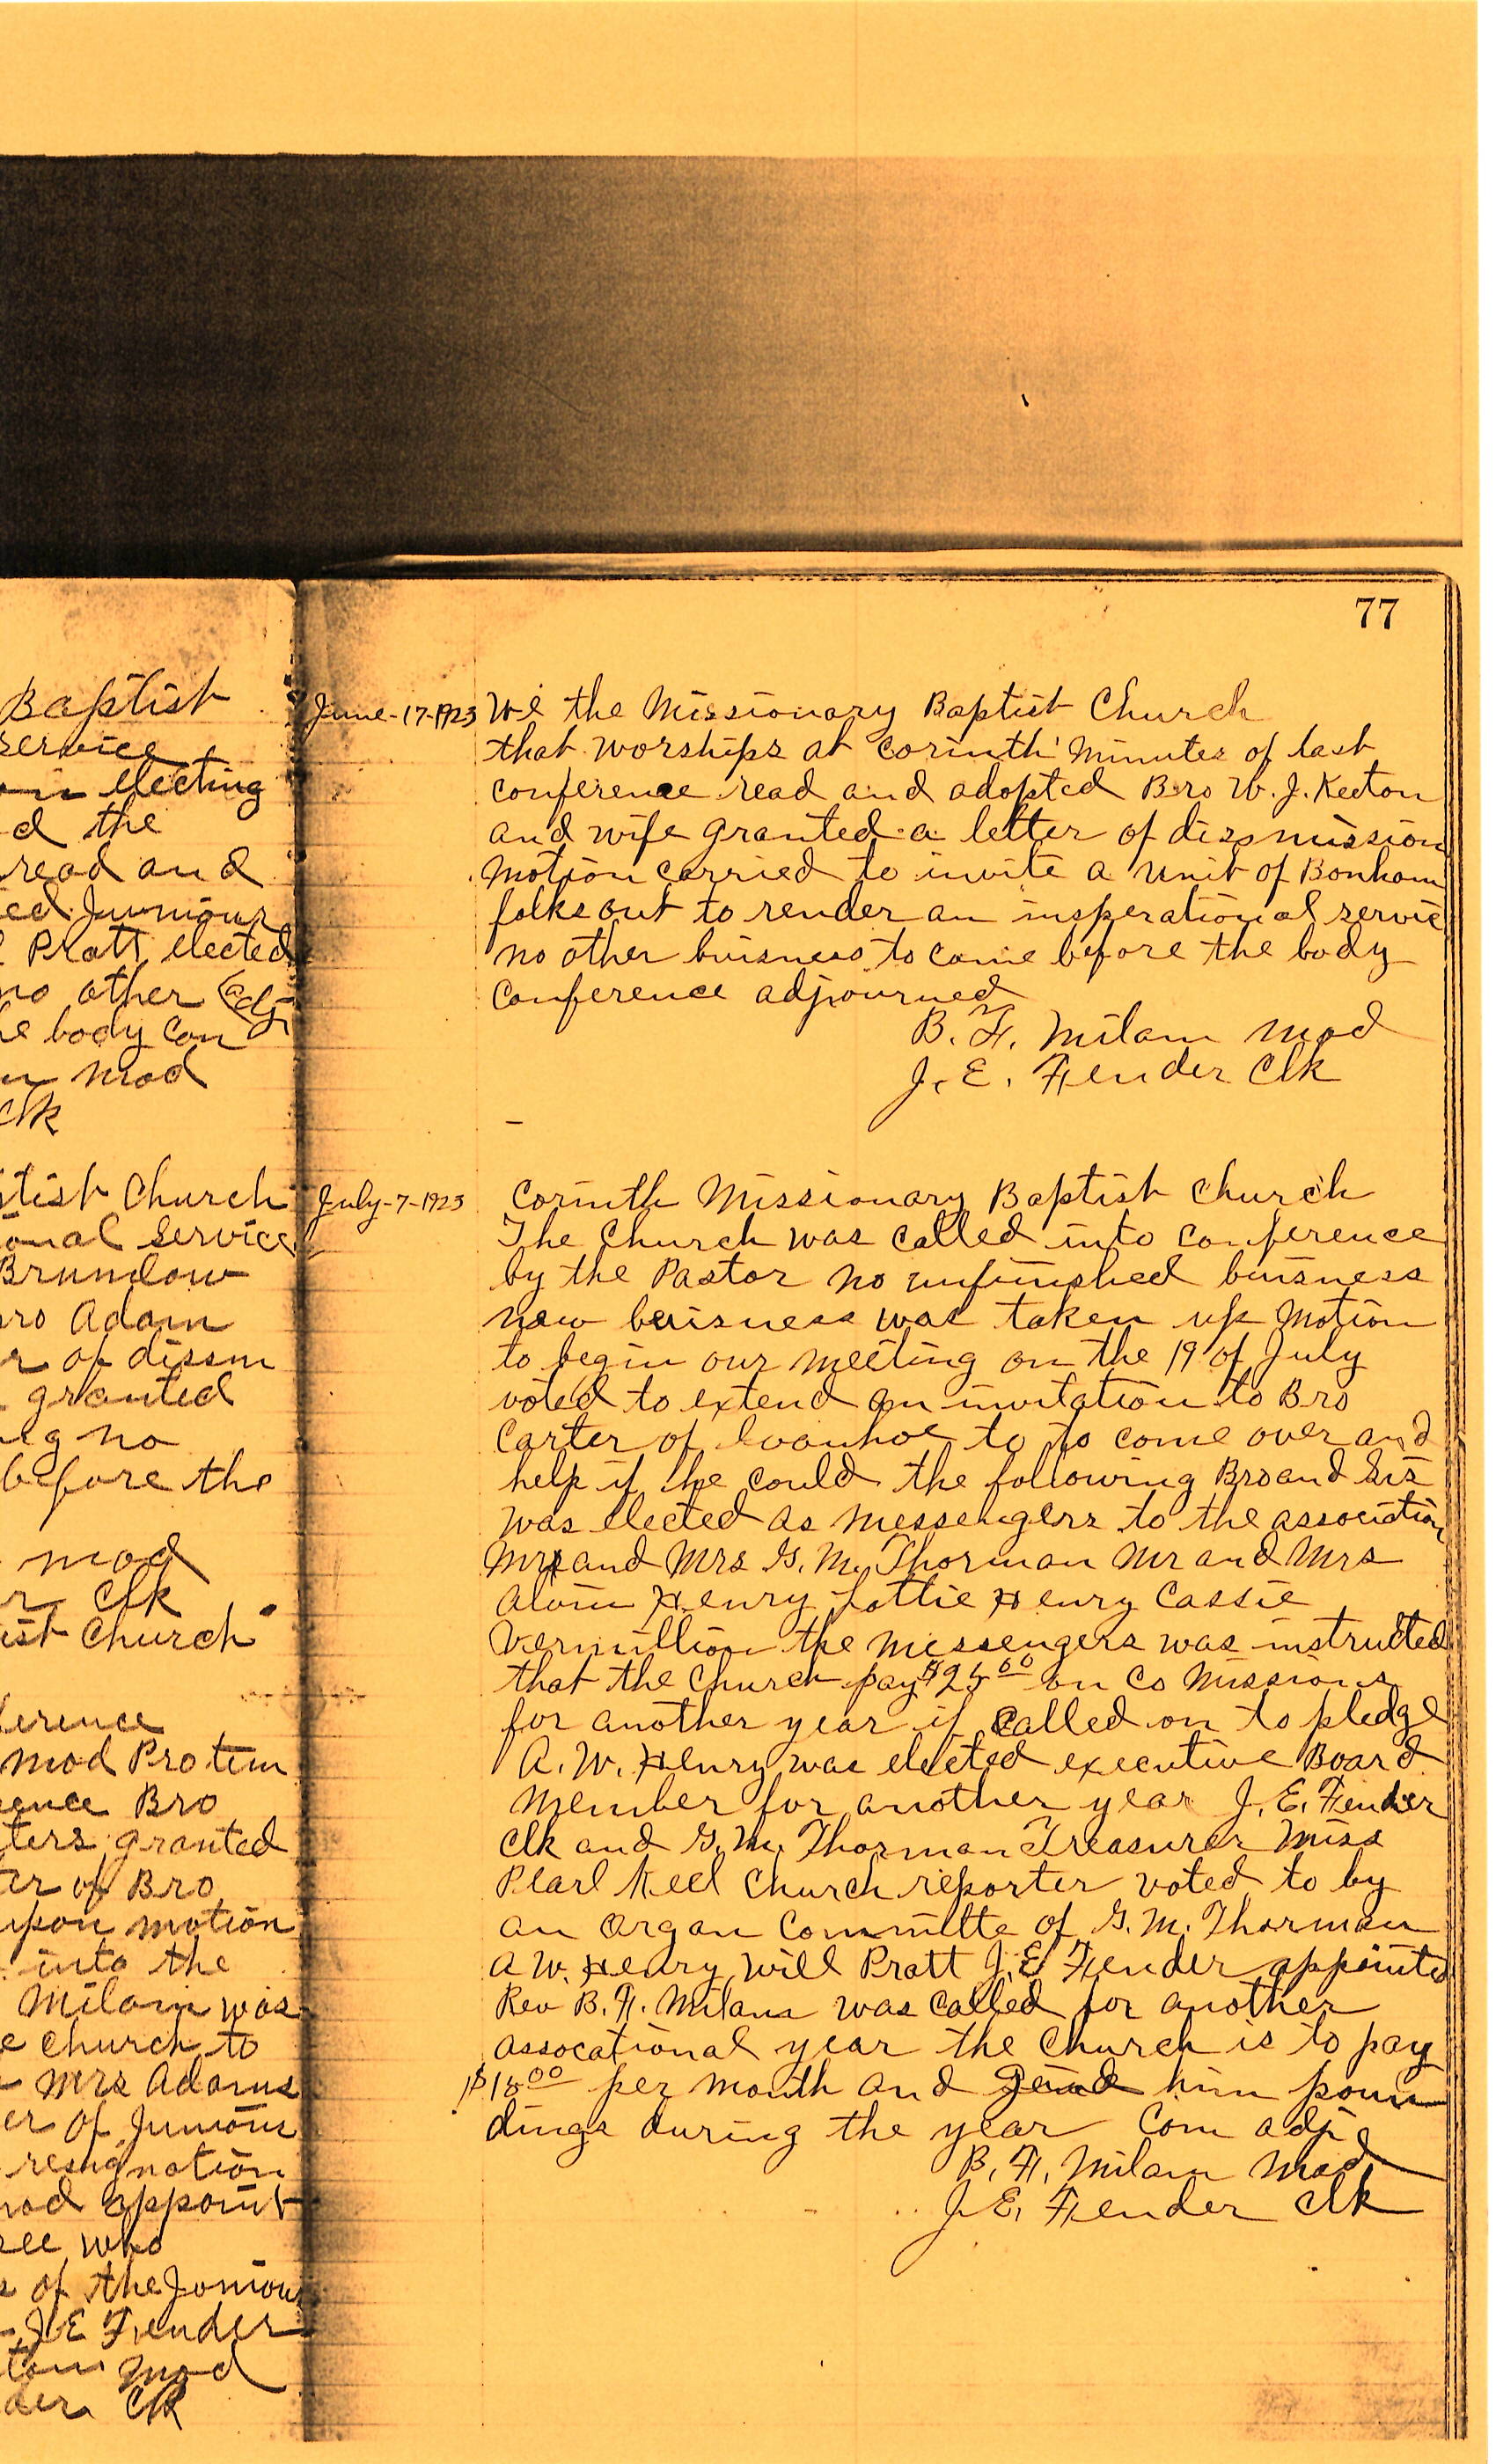 77
Baptist
service
electing
d the
read and
ed Juniours
Pratt elected
no other adj
he body Con
mod
Clk
tist Church
ional Service
Brumlow
ro Adam
r of dissm
granted
no
before the
mod
r Clk
ist Church
ference
mod Protem
ence Bro
ters granted
ter of Bro
upon motion
into the
Milam was
e church to
Mrs Adams
er of Juniours
resignation
mod appoint
ee who
s of the Joniours
J E Fender
tom mod
der Clk
June-17-1923 We the Missionary Baptist Church
that worships at Corinth Minutes of last
conference read and adopted Bro W. J. Keeton
and wife granted a letter of dissmission
motion carried to invite a unit of Bonham
folks out to render an insperational servic
no other buisness to come before the body
Conference adjourned
B. F. Milam mod
J. E. Fender Clk
July-7-1923 Corinth Missionary Baptist Church
The Church was called into conference
by the Pastor no unfinished buisness
new buisness was taken up Motion
to begin our meeting on the 19 of July
voted to extend an invitation to Bro
Carter of Ivanhoe to to come over and
help if he could the following Bro and Sis
was elected as messengers to the association
Mr and Mrs G. M. Thorman Mr and Mrs
Alvin Henry Lottie Henry Cassie
Vermillion the messengers was instructed
that the Church pay $25 00 on Co Missions
for another year if called on to pledge
A. W. Henry was elected executive Board
Member for another year J. E. Fender
Clk and G. M. Thorman Treasurer Miss
Pearl Keel Church reporter voted to by
an Organ Committe of G. M. Thorman
A W. Henry Will Pratt J. E Fender appointed
Rev B. F. Milam was called for another
assocational year the Church is to pay
$15 00 per month and him poun
dings during the year Con adj
B. F. Milam Mod
J. E. Fender Clk